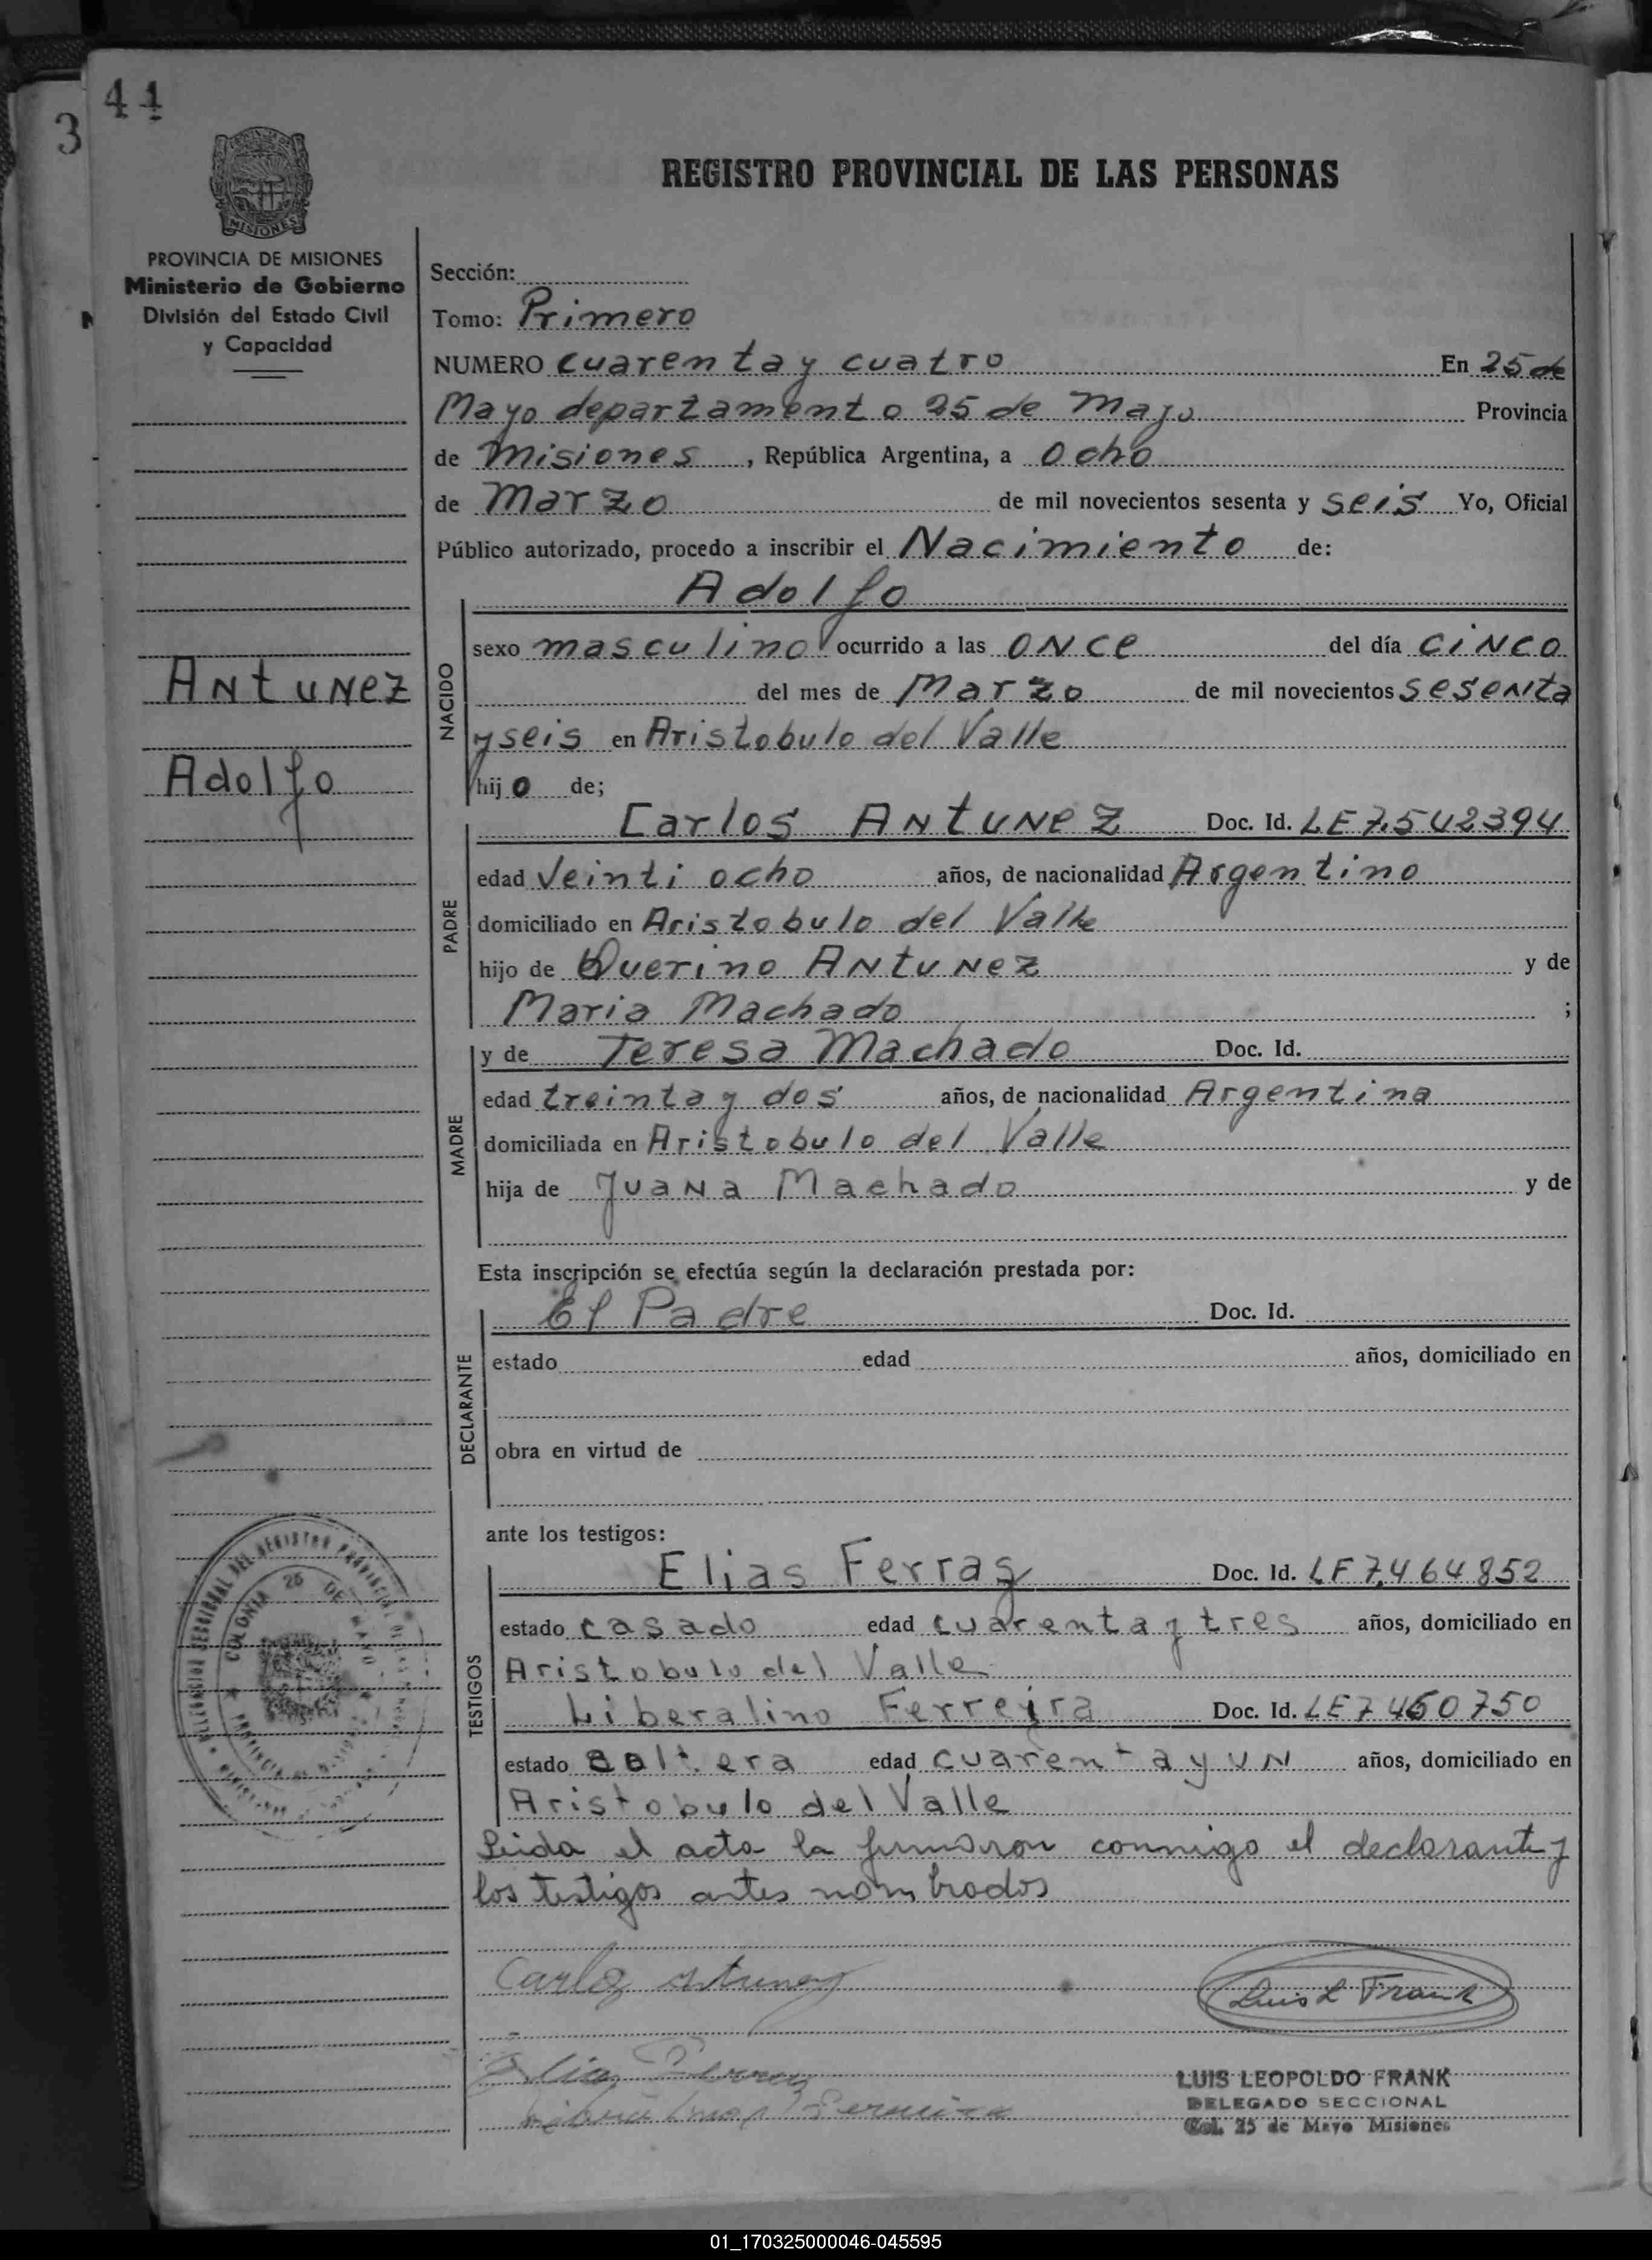 44
3
MISIONES
REGISTRO PROVINCIAL DE LAS PERSONAS
PROVINCIA DE MISIONES
Ministerio de Gobierno
División del Estado Civil
y Capacidad
Antunez
Adolfo
Sección:
Tomo: Primero
NUMERO cuarenta y cuatro En 25 de
Mayo departamento 25 de Mayo Provincia
de Misiones, República Argentina, a Ocho
de Marzo de mil novecientos sesenta y seis Yo, Oficial
Público autorizado, procedo a inscribir el Nacimiento de:
Adolfo
NACIDO
sexo masculino ocurrido a las ONCE del día CINCO
del mes de Marzo de mil novecientos sesenta
y seis en Aristobulo del Valle
hijo de;
Carlos ANtUNEZ Doc. Id. LE 7.542394
PADRE
edad Veinti ocho años, de nacionalidad Argentino
domiciliado en Aristobulo del Valle
hijo de Querino ANtUNEZ y de
Maria Machado ;
MADRE
y de Teresa Machado Doc. Id.
edad treinta y dos años, de nacionalidad Argentina
domiciliada en Aristobulo del Valle
hija de Juana Machado y de
Esta inscripción se efectúa según la declaración prestada por:
DECLARANTE
El Padre Doc. Id.
estado edad años, domiciliado en
obra en virtud de
ante los testigos:
TESTIGOS
Elias Ferraz Doc. Id. LE 7.464852
estado casado edad cuarenta y tres años, domiciliado en
Aristobulo del Valle
Liberalino Ferreira Doc. Id. LE 7460750
estado soltera edad cuarenta y un años, domiciliado en
Aristobulo del Valle
Leida el acta la firmaron conmigo el declarante y
los testigos antes nombrados
COLONIA 25 DE MAYO
Carlos Antunez
Luis L Frank
Elias Ferraz
Ferreira
LUIS LEOPOLDO FRANK
DELEGADO SECCIONAL
Col. 25 de Mayo Misiones
01_170325000046-045595